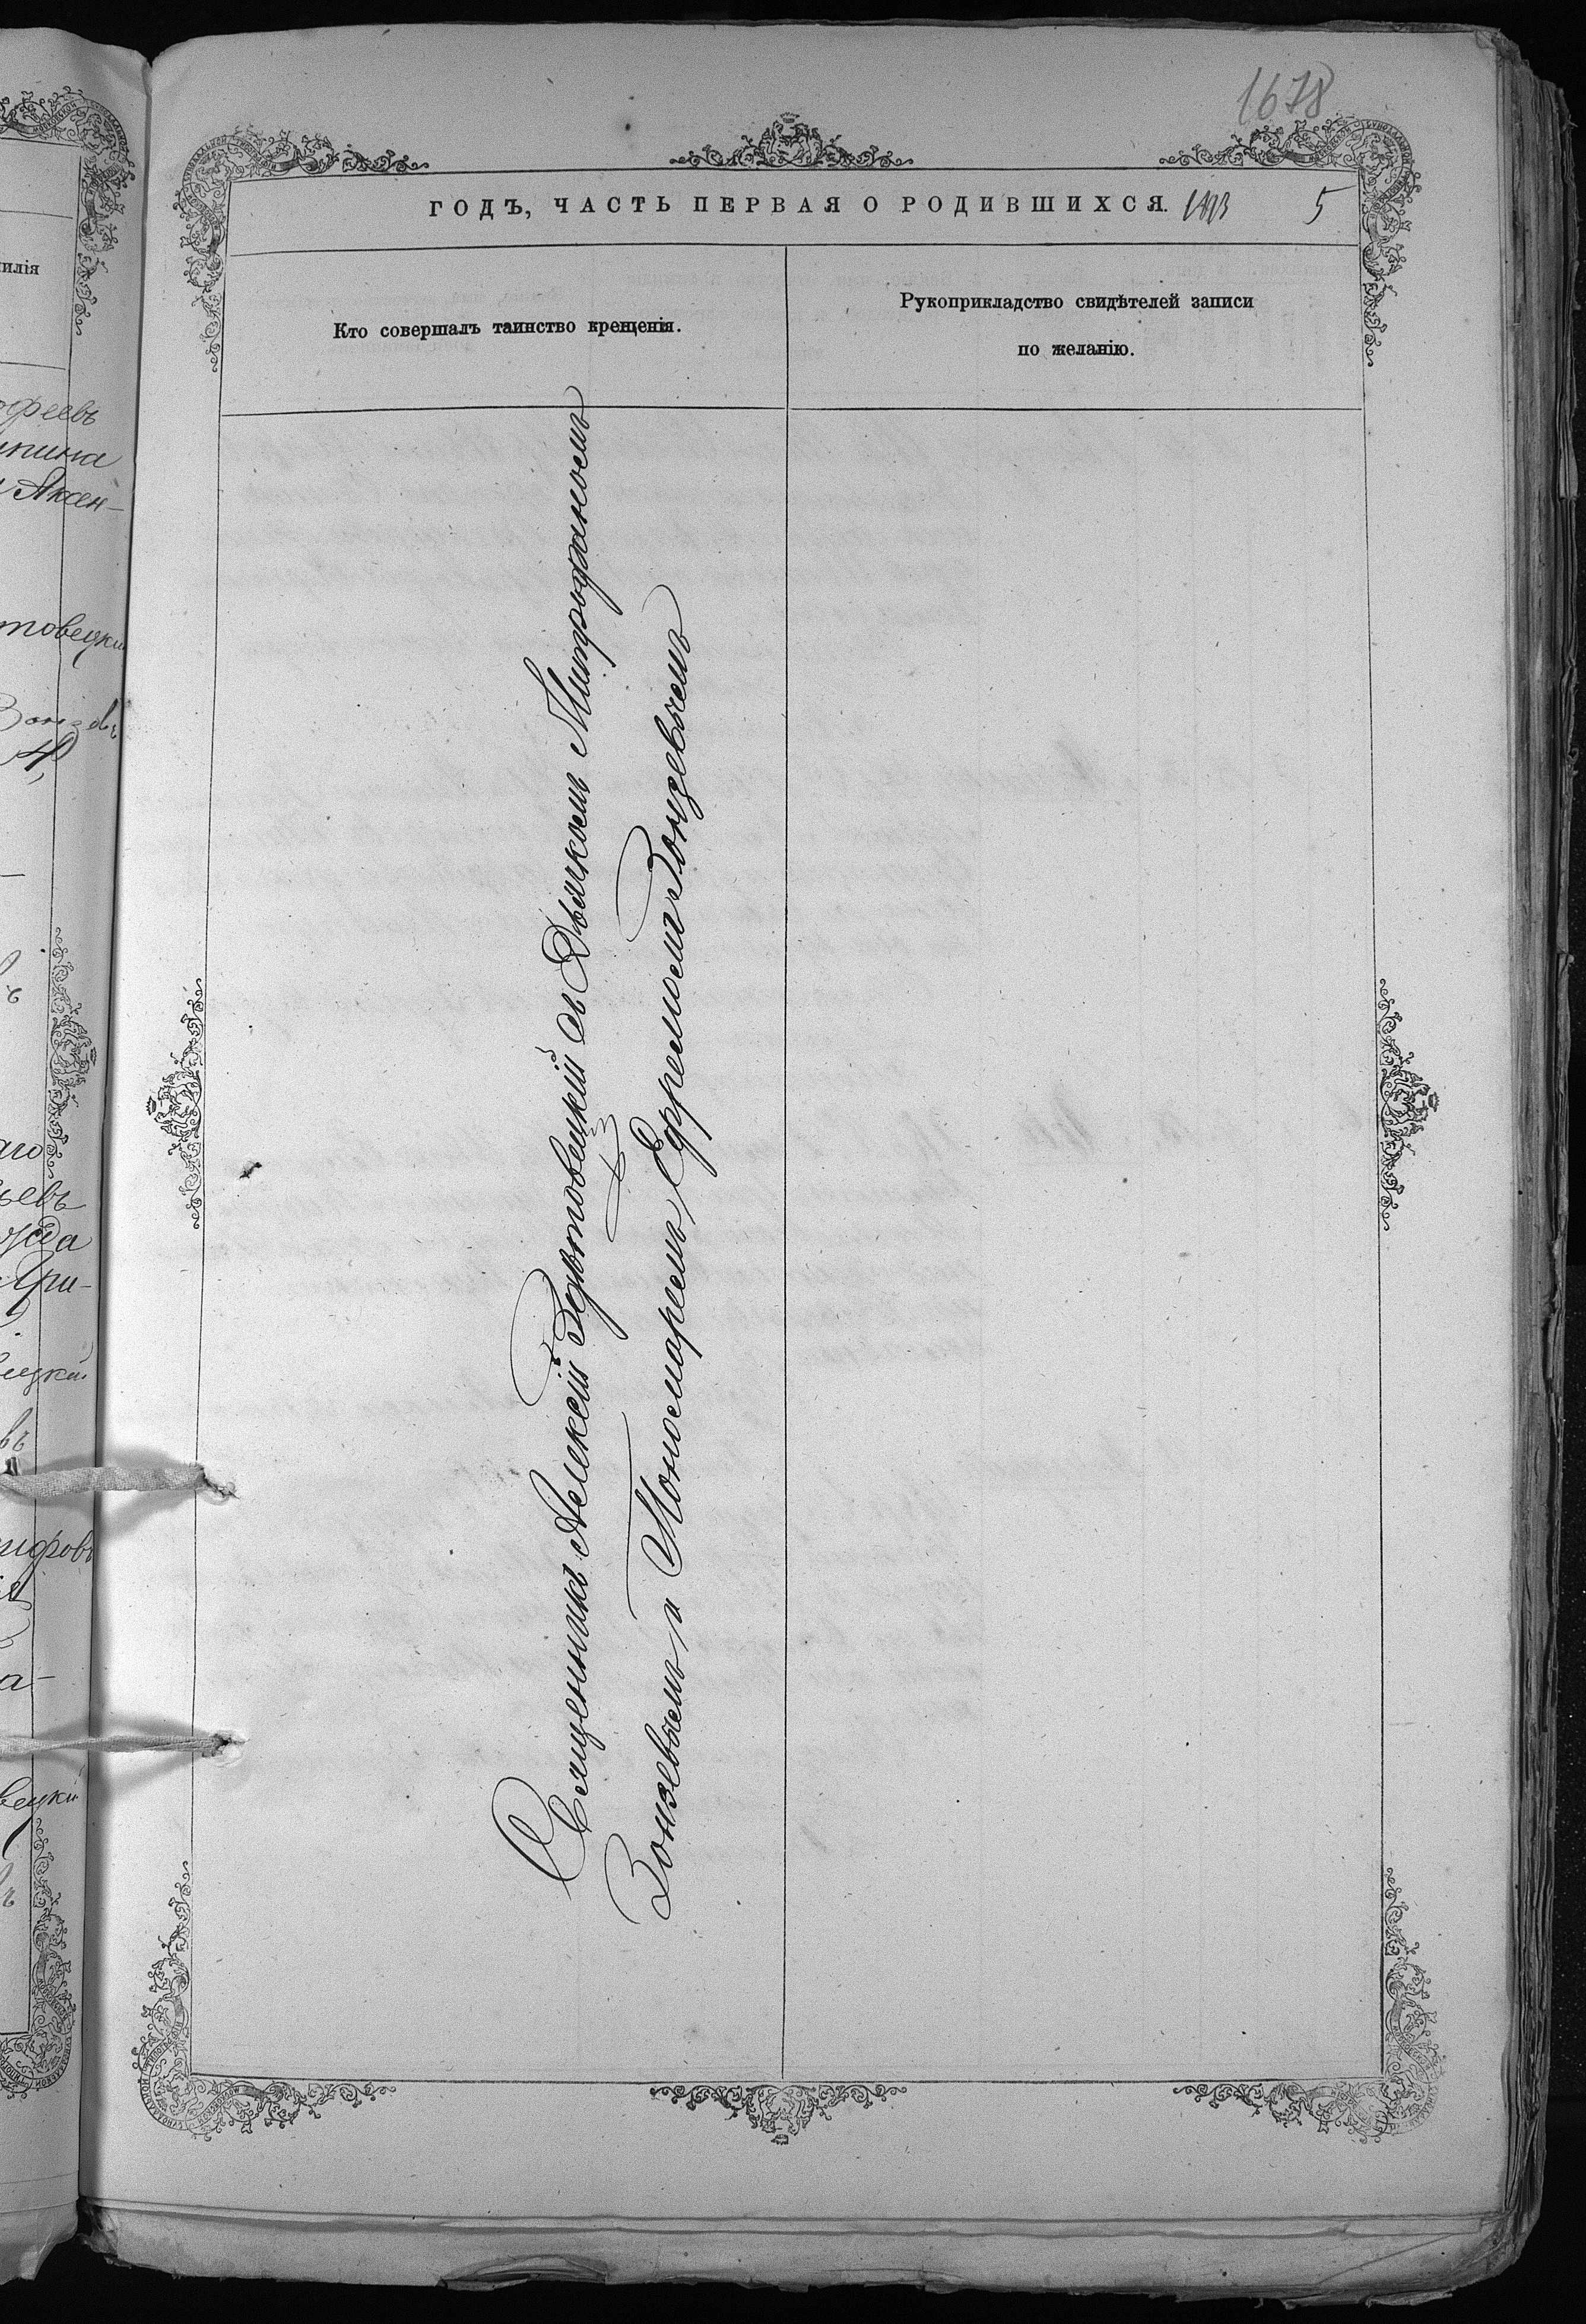 1678
ГОДЪ, ЧАСТЬ ПЕРВАЯ О РОДИВШИХСЯ. 5
Кто совершалъ таинство крещенія.
Рукоприкладство свидѣтелей записи
по желанію.
Священникъ Алексій съ Дьячкомъ Митрофаномъ
Зонзевымъ и Пономаремъ Ефремомъ Зонзевымъ
илія
офеевъ
Аксен-
товецкій
Зонзевъ
аго
ьевъ
жда
Гри-
вецкій
въ
вецкій